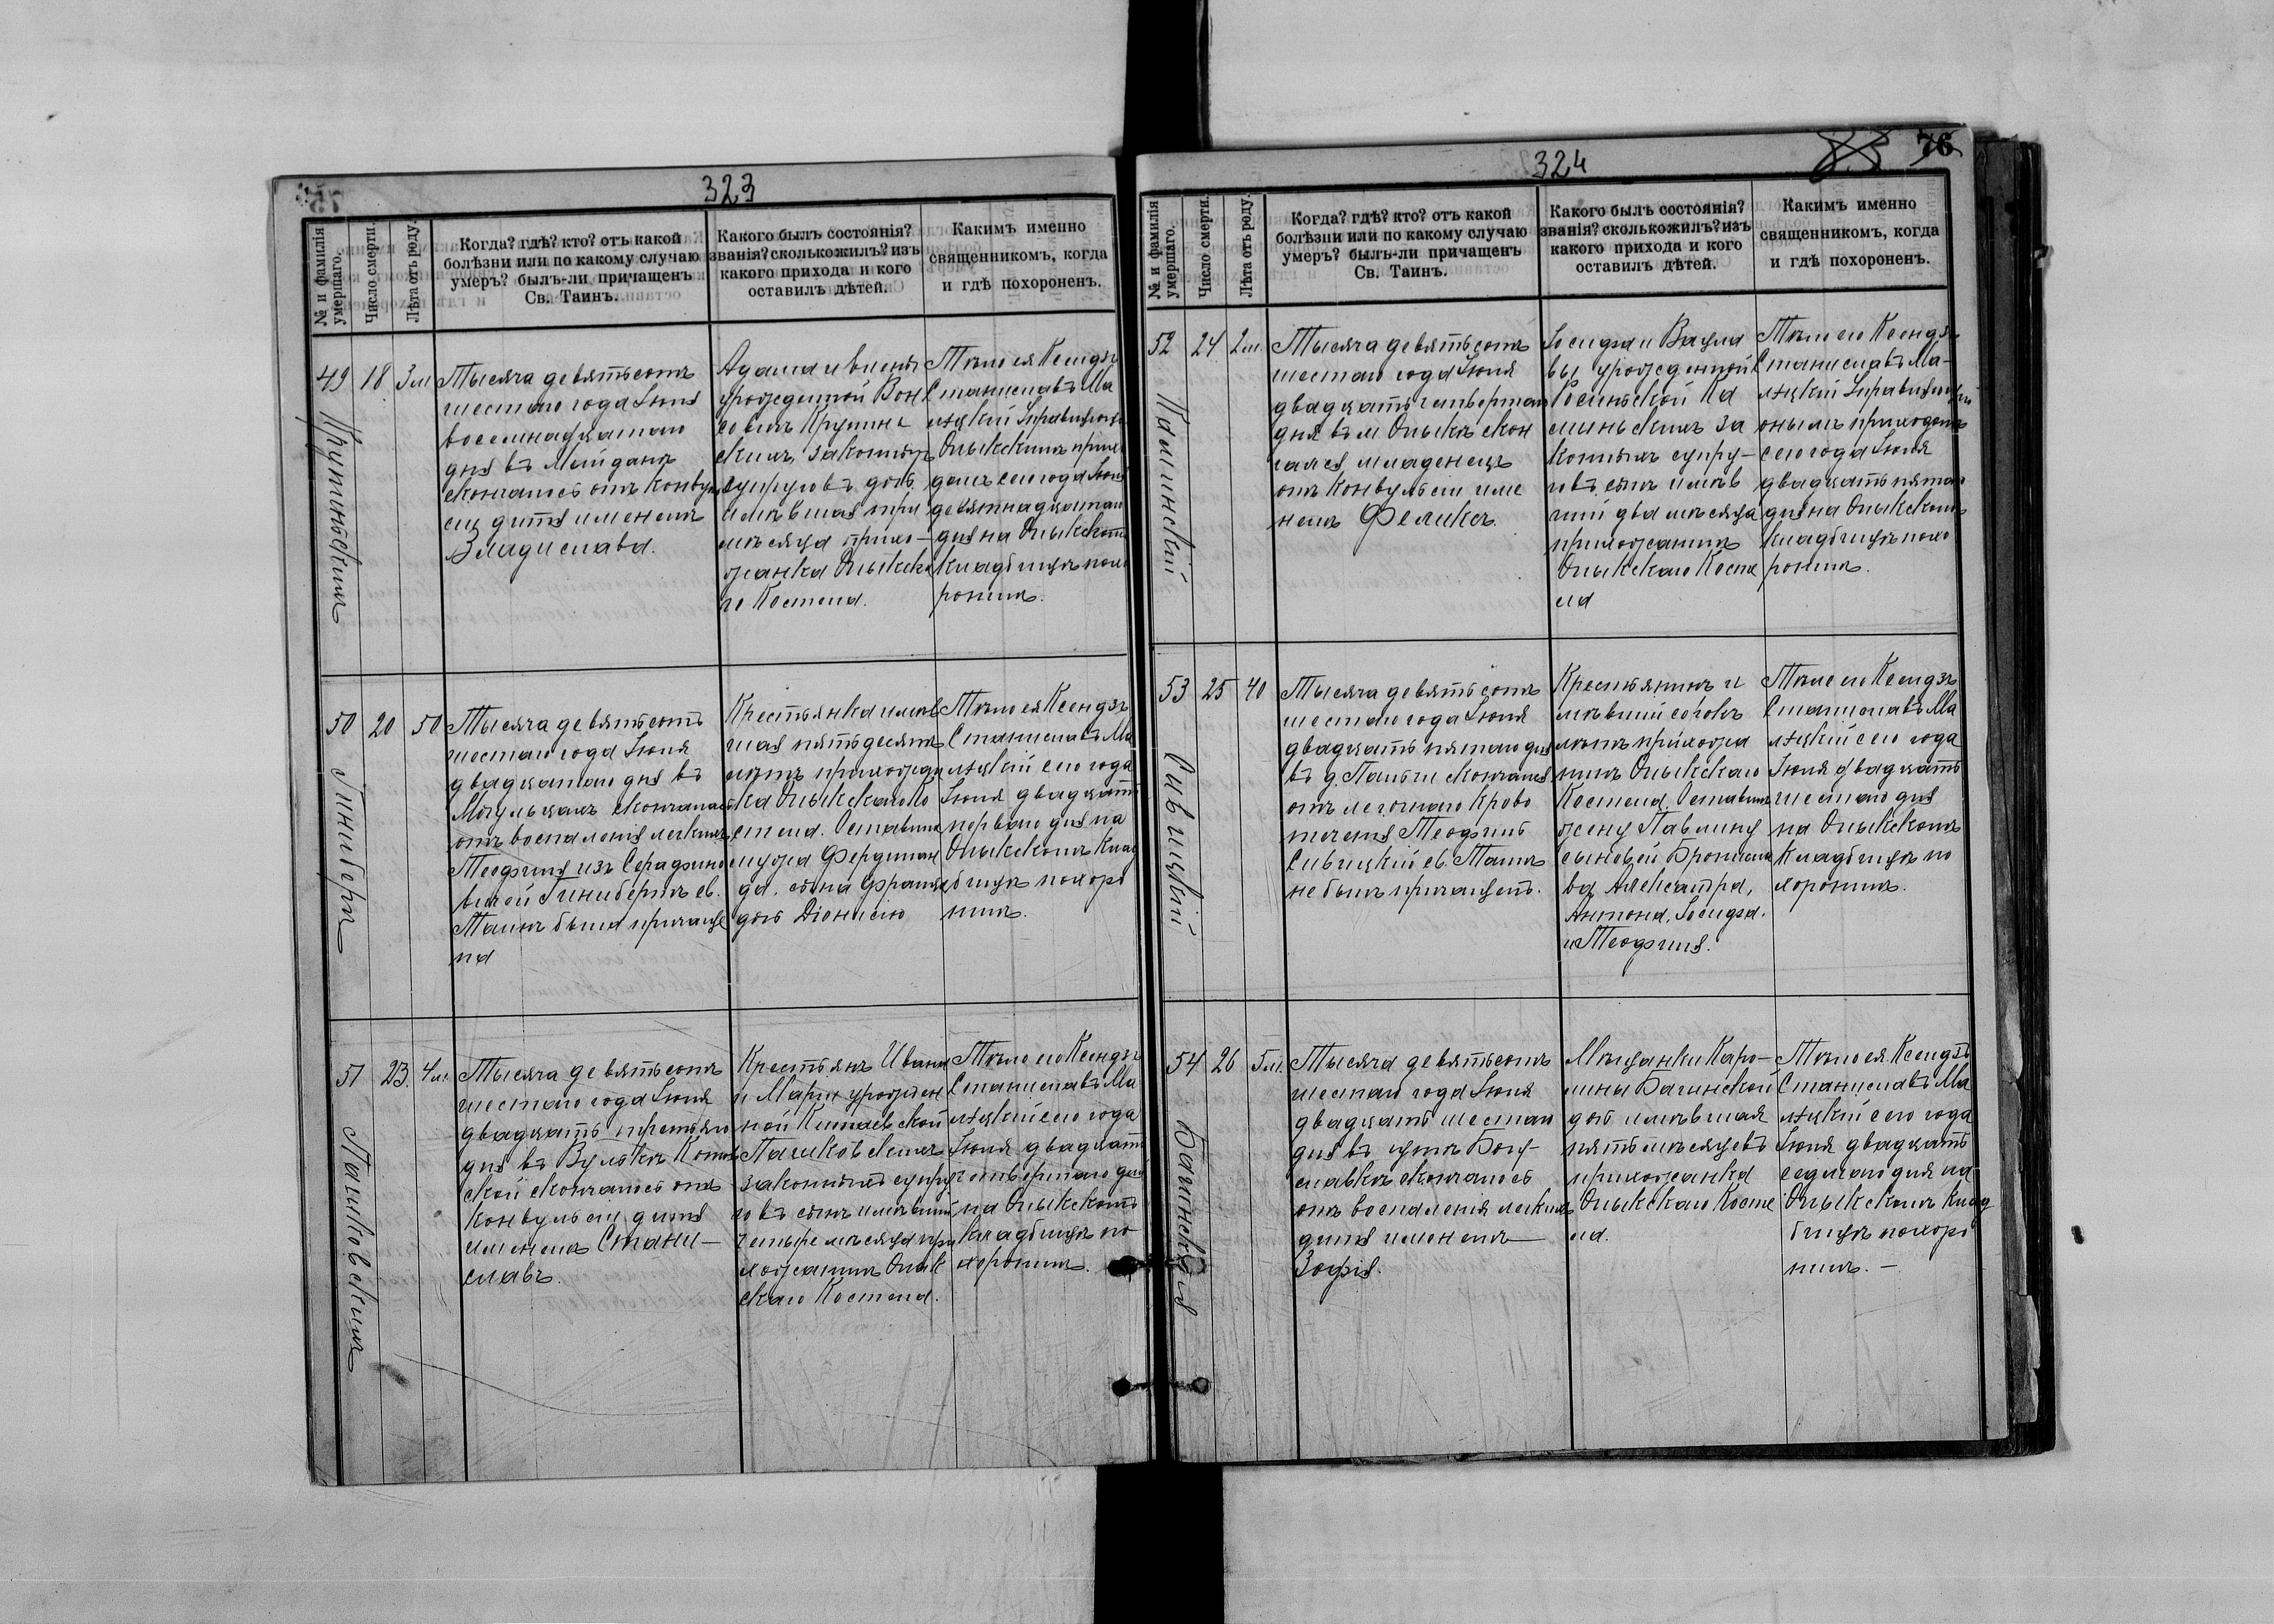 323
№ и фамилія умершаго.
Число смерти.
Лѣта отъ роду.
Когда? гдѣ? кто? отъ какой
болѣзни или по какому случаю
умеръ? былъ-ли причащенъ
Св. Таинъ.
Какого былъ состоянія?
званія? сколько жилъ? изъ
какого прихода и кого
оставилъ дѣтей.
Какимъ именно
священникомъ, когда
и гдѣ похороненъ.
49
18
3 м
Тысяча девятьсотъ
шестаго года Іюня
восемнадцатаго
дня въ Майданѣ
скончалось отъ конвуль
сіи дитя именемъ
Владислава.
Адама и
урожденной
Крупинь
скихъ, законныхъ
супруговъ дочь
имѣвшая три
мѣсяца прихо-
жанка Олыкска
го Костела.
Тѣло ея Ксендзъ
Станиславъ Ма
лецкій Управляющій
Олыкскимъ прихо
домъ сего года Іюня
девятнадцатаго
дня на Олыкскомъ
кладбищѣ похо
ронилъ.
50
20
50
Гинибергъ
Тысяча девятьсотъ
шестаго года Іюня
двадцатаго дня въ
скончалась
отъ воспаленія легкихъ
Теофиля изъ Серафино
вичей Гинибергъ св.
Таинъ была причаще
на
Крестьянка имѣв
шая пятьдесятъ
лѣтъ прихожан
ка Олыкскаго Ко
стела. Оставила
мужа Фердинан
да. сына Франца
дочь Діонисію
Тѣло ея Ксендзъ
Станиславъ Ма
лецкій сего года
Іюня двадцать
перваго дня на
Олыкскомъ клад
бищѣ похоро
нилъ.
51
23
4 м.
Пашковскихъ
Тысяча девятьсотъ
шестаго года Іюня
двадцать третьяго
дня въ Вулькѣ Котов
ской скончалось отъ
конвульсіи дитя
именемъ Стани-
славъ.
Крестьянъ Ивана
и Маріи урожден
ной
Пашковскихъ
законныхъ супру
говъ сынъ имѣвшій
четыре мѣсяца при
хожанинъ Олык
скаго Костела.
Тѣло его Ксендзъ
Станиславъ Ма
лецкій сего года
Іюня двадцать
четвертаго дня
на Олыкскомъ
кладбищѣ по
хоронилъ.
324
76
№ и фамилія умершаго.
Число смерти.
Лѣта отъ роду.
Когда? гдѣ? кто? отъ какой
болѣзни или по какому случаю
умеръ? былъ-ли причащенъ
Св. Таинъ.
Какого былъ состоянія?
званія? сколько жилъ? изъ
какого прихода и кого
оставилъ дѣтей.
Какимъ именно
священникомъ, когда
и гдѣ похороненъ.
52
24
2 м.
Каминскій
Тысяча девятьсотъ
шестаго года Іюня
двадцать четвертаго
дня въ м Олыкѣ скон
чался младенецъ
отъ конвульсіи име
немъ Феликсъ.
Іосифа и Вацла
вы урожденной
Косиньской Ка
миньскихъ за
конныхъ супру-
говъ, сынъ имѣв
шій два мѣсяца
прихожанинъ
Олыкскаго Косте
ла
Тѣло его Ксендзъ
Станиславъ Ма-
лецкій Управляющій
онымъ приходомъ
сего года Іюня
двадцать пятаго
дня на Олыкскомъ
кладбищѣ похо
ронилъ.
53
25
40
Сивицкій
Тысяча девятьсотъ
шестаго года Іюня
двадцать пятаго дня
въ д. скончался
отъ легочнаго крово
теченія Теофиль
Сивицкій св. Таинъ
не былъ причащенъ.
Крестьянинъ и
мѣвшій сорокъ
лѣтъ прихожа
нинъ Олыкскаго
Костела. Оставилъ
жену Павлину
сыновей Бронисла
ва, Александра,
Антона, Іосифа.
и Теофиля.
Тѣло его Ксендзъ
Станиславъ Ма
лецкій сего года
Іюня двадцать
шестаго дня
на Олыкскомъ
кладбищѣ по
хоронилъ.
54
26
5 м.
Багинская
Тысяча девятьсотъ
шестаго года Іюня
двадцать шестаго
дня въ Богу-
славкѣ скончалось
отъ воспаленія легкихъ
дитя именемъ
Зофія.
Мѣщанки Каро-
лины Багинской
дочь имѣвшая
пять мѣсяцевъ
прихожанка
Олыкскаго Косте
ла.
Тѣло ея Ксендзъ
Станиславъ Ма
лецкій сего года
Іюня двадцать
седьмаго дня на
Олыкскомъ клад
бищѣ похоро
нилъ. -